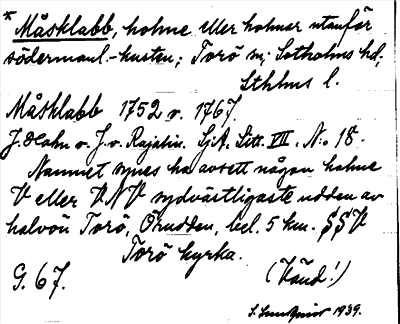 * Måsklabb, holme eller holmar utanför
södermanl.-kusten; Torö sn; Sotholms hd,
Sthlms l.
Måsklabb 1752 o. 1767.
J. Hahn o. J. v. Rajalin. SjA. Litt. VII. No 18.
Namnet synes ha avsett någon holme
V eller VNV sydvästligaste udden av
halvön Torö, Örudden, bel. 5 km. SSV
Torö kyrka.
G. 67. (Vänd!)
S. 1939.